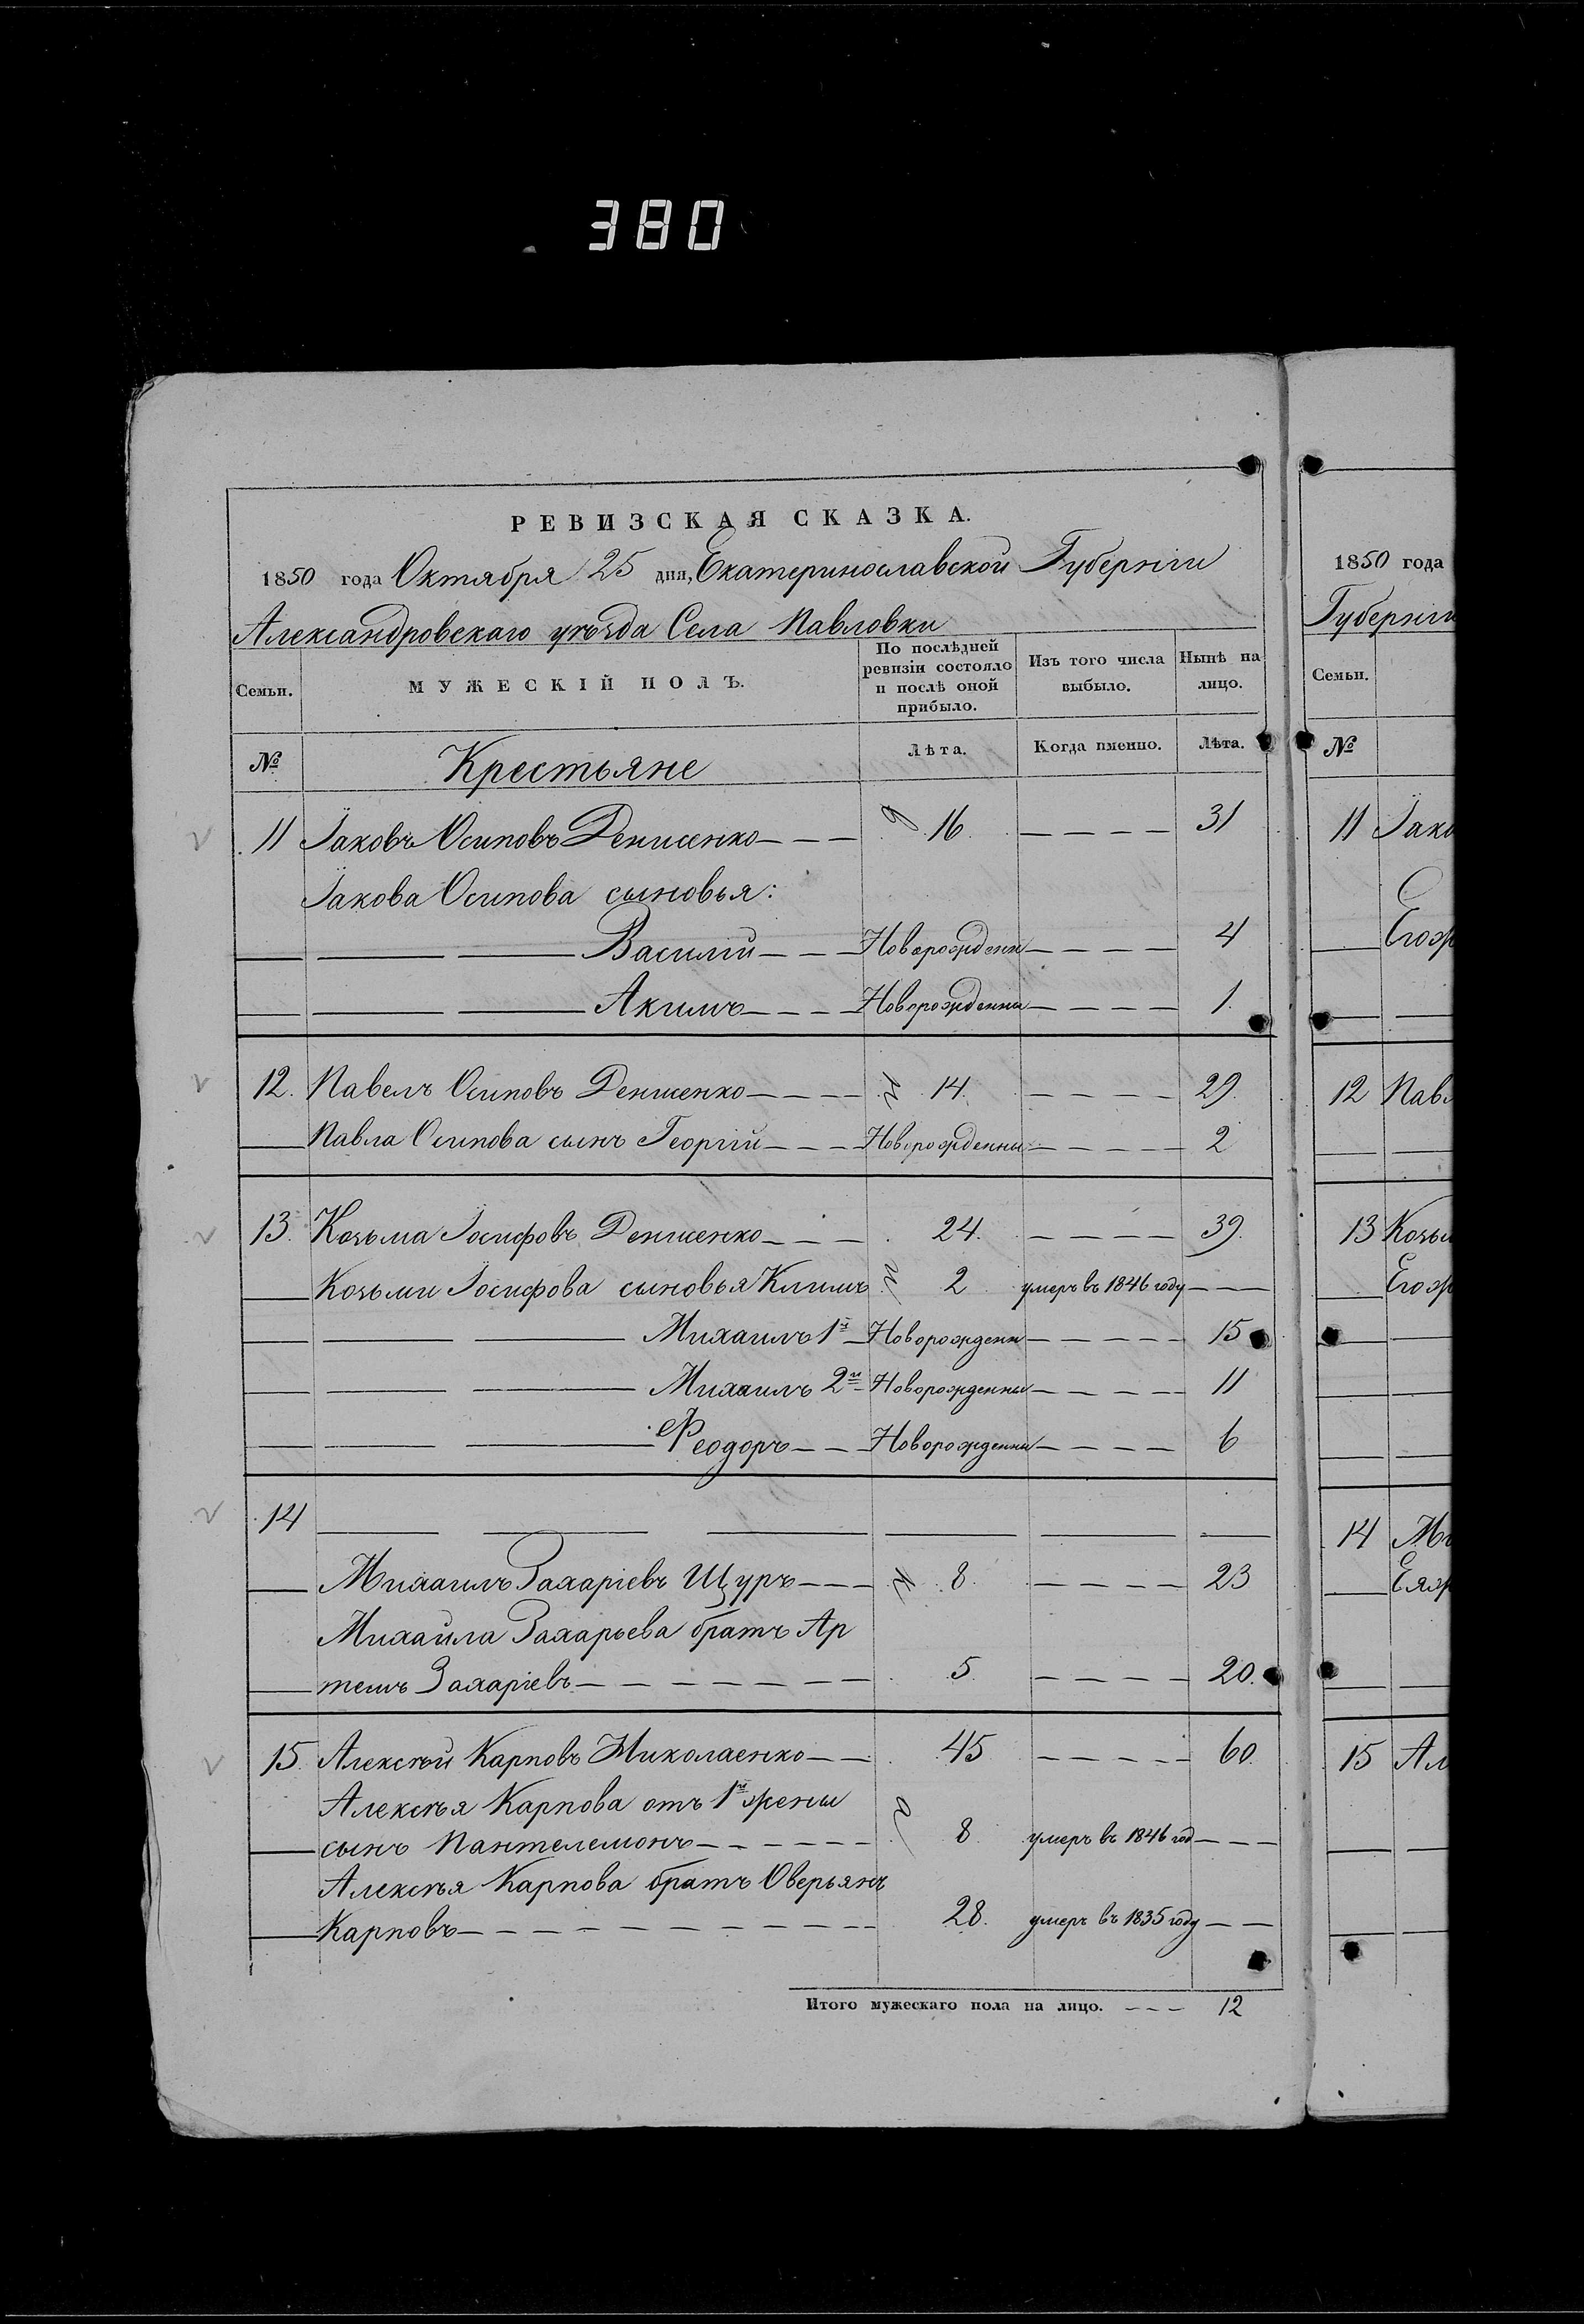 380
РЕВИЗСКАЯ СКАЗКА.
1850 года Октября 25 дня, Екатеринославской Губерніи
Александровскаго уѣзда Села Павловки
Семьи. МУЖЕСКІЙ ПОЛЪ. По послѣдней ревизіи состояло и послѣ оной прибыло. Изъ того числа выбыло. Нынѣ на лицо.
№ Крестьяне Лѣта. Когда именно. Лѣта.
11 Іаковъ Осиповъ Денисенко 16 31
Іакова Осипова сыновья:
Василий Новорожденн 4
Акимъ Новорожденны 1
12. Павелъ Осиповъ Денисенко 14 29
Павла Осипова сынъ Георгій Новорожденны 2
13. Козьма Іосифовъ Денисенко 24. 39.
Козьми Іосифова сыновья Климъ 2 умеръ въ 1846 году
Михаилъ 1й Новорожденн 15
Михаилъ 2й Новорожденны 11
Феодоръ Новорожденны 6
14
Михаилъ Захаріевъ Щуръ 8. 23
Михаила Захарьева братъ Ар
темъ Захаріевъ 5. 20.
15. Алексѣй Карповъ Николаенко 45 60.
Алексѣя Карпова отъ 1й жены
сынъ Пантелемонъ 8. умеръ въ 1846 год
Алексѣя Карпова братъ Оверьянъ
Карповъ 28. умеръ въ 1835 году
Итого мужескаго пола на лицо. 12
1850 года
Губерніи
Семьи.
№
11 Іако
Егож
12 Павл
13 Козьм
Егож
14 Ми
Еяж
15 Ал